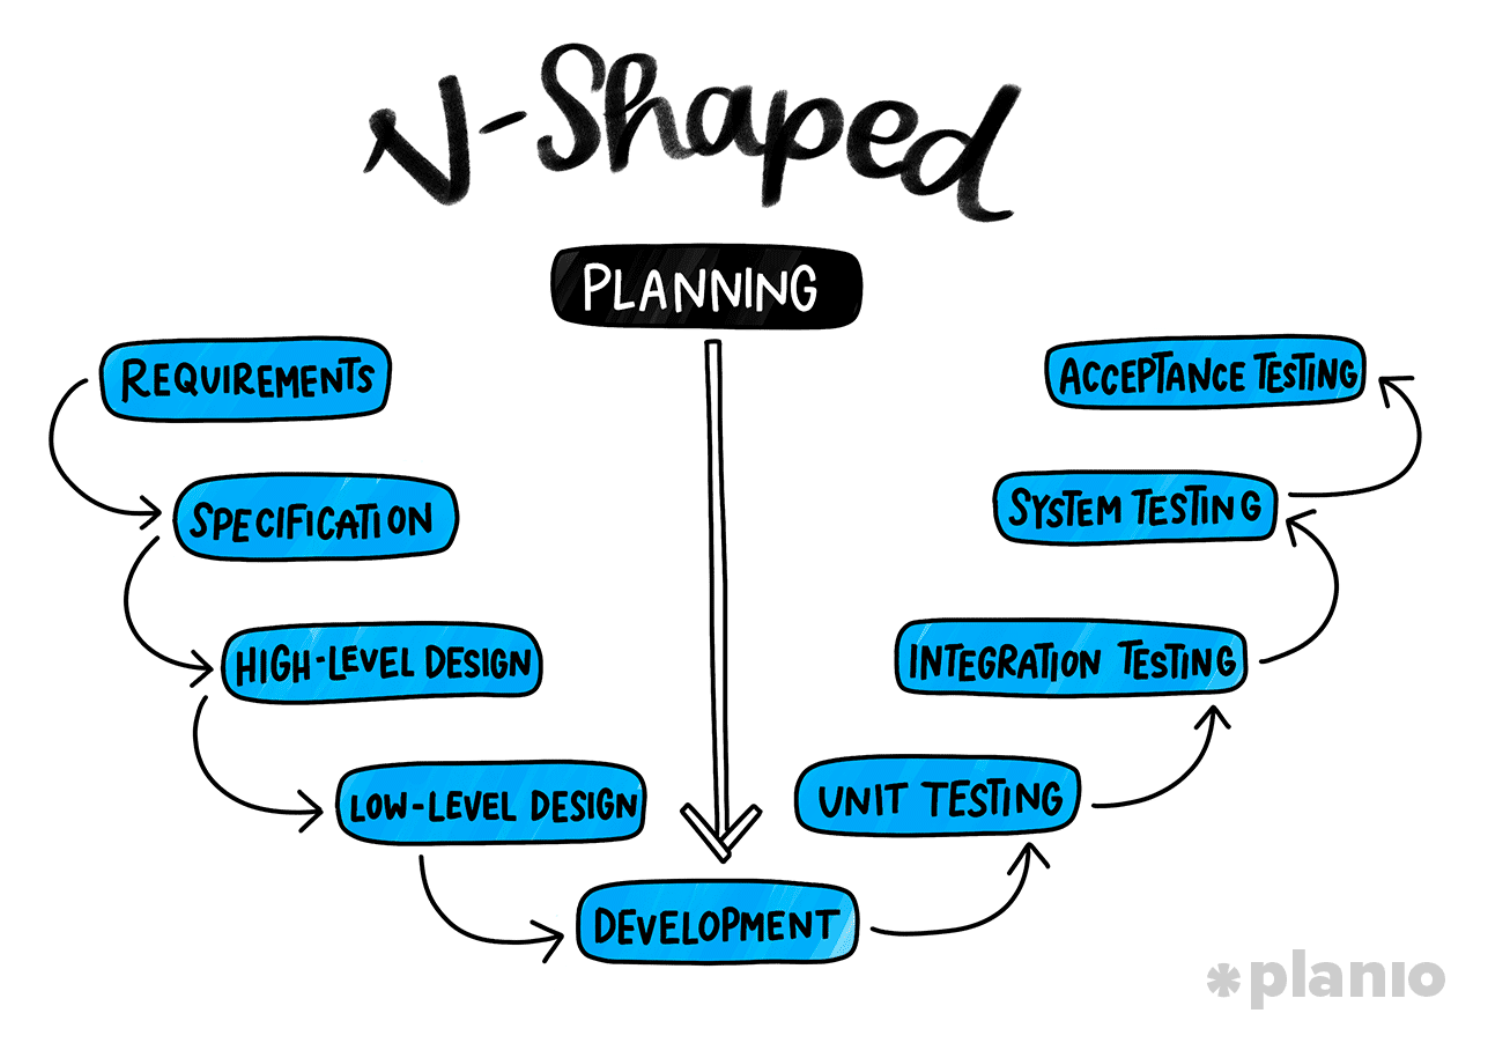 V-Shaped
PLANNING
REQUIREMENTS
SPECIFICATION
HIGH-LEVEL DESIGN
LOW-LEVEL DESIGN
DEVELOPMENT
UNIT TESTING
INTEGRATION TESTING
SYSTEM TESTING
ACCEPTANCE TESTING
*planio